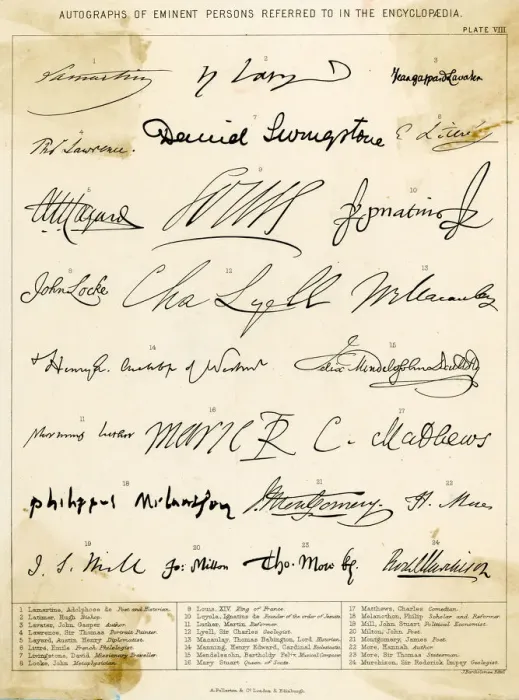 AUTOGRAPHS OF EMINENT PERSONS REFERRED TO IN THE ENCYCLOPÆDIA.
PLATE VIII
1
2
3
Lamartine
Jeangaspard Lavater
4
7
6
Thos Lawrence.
David Livingstone
E Littré
5
9
10
Louis
Ignatius
8
12
13
John Locke
Cha Lyell
TBMacaulay
14
15
Felix Mendelssohn Bartholdy
11
16
17
Martinus Luther
MARIE R
C. Mathews
18
21
22
philippus Melanthon
J. Montgomery.
H. More
19
20
23
24
J. S. Mill
Jo: Milton
Tho. More kg.
Rod I Murchison
1 Lamartine, Adolphose de Poet and Historian.
2 Latimer, Hugh Bishop.
3 Lavater, John Gasper Author
4 Lawrence, Sir Thomas Portrait Painter.
5 Layard, Austin Henry Diplomatist.
6 Littré, Emile French Philologist.
7 Livingstone, David Missionary Traveller
8 Locke, John Metaphysician
9 Louis, XIV. King of France
10 Loyola, Ignatius de Founder of the order of Jesuits
11 Luther, Martin Reformer.
12 Lyell, Sir Charles Geologist.
13 Macaulay, Thomas Babington, Lord Historian.
14 Manning, Henry Edward, Cardinal Ecclesiastic.
15 Mendelssohn, Bartholdy Felix Musical Composer
16 Mary Stuart Queen of Scots.
17 Matthews, Charles Comedian.
18 Melancthon, Philip Scholar and Reformer
19 Mill, John Stuart Political Economist.
20 Milton, John Poet.
21 Montgomery, James Poet.
22 More, Hannah Author
23 More, Sir Thomas Statesman.
24 Murchison, Sir Roderick Impey Geologist.
J. Bartholomew, Edinr.
A. Fullarton & Co. London & Edinburgh.